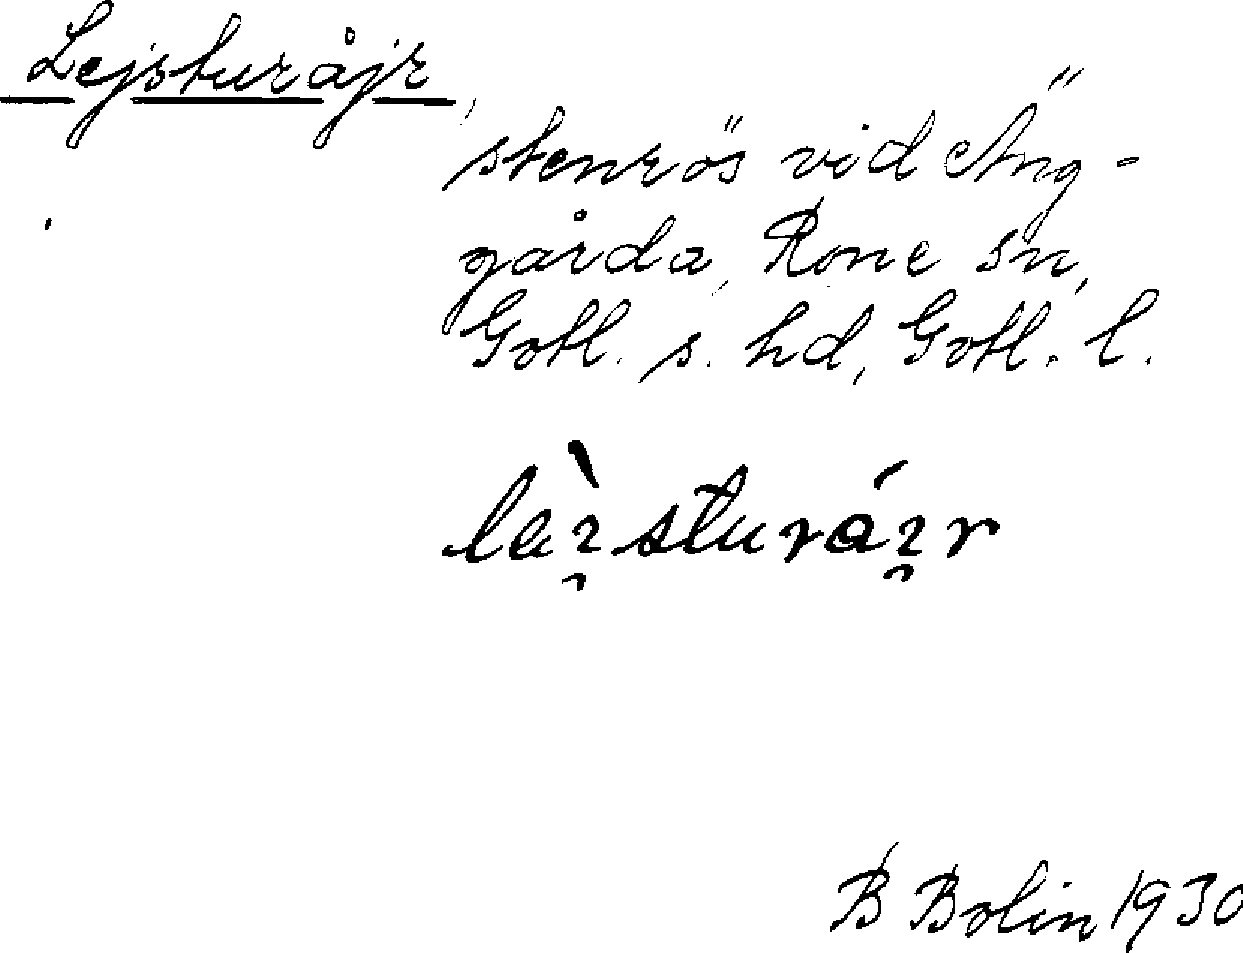 Lejsturåjr,
stenrös vid Äng-
gårda, Rone sn,
Gotl. s. hd, Gotl. l.
B Bolin 1930